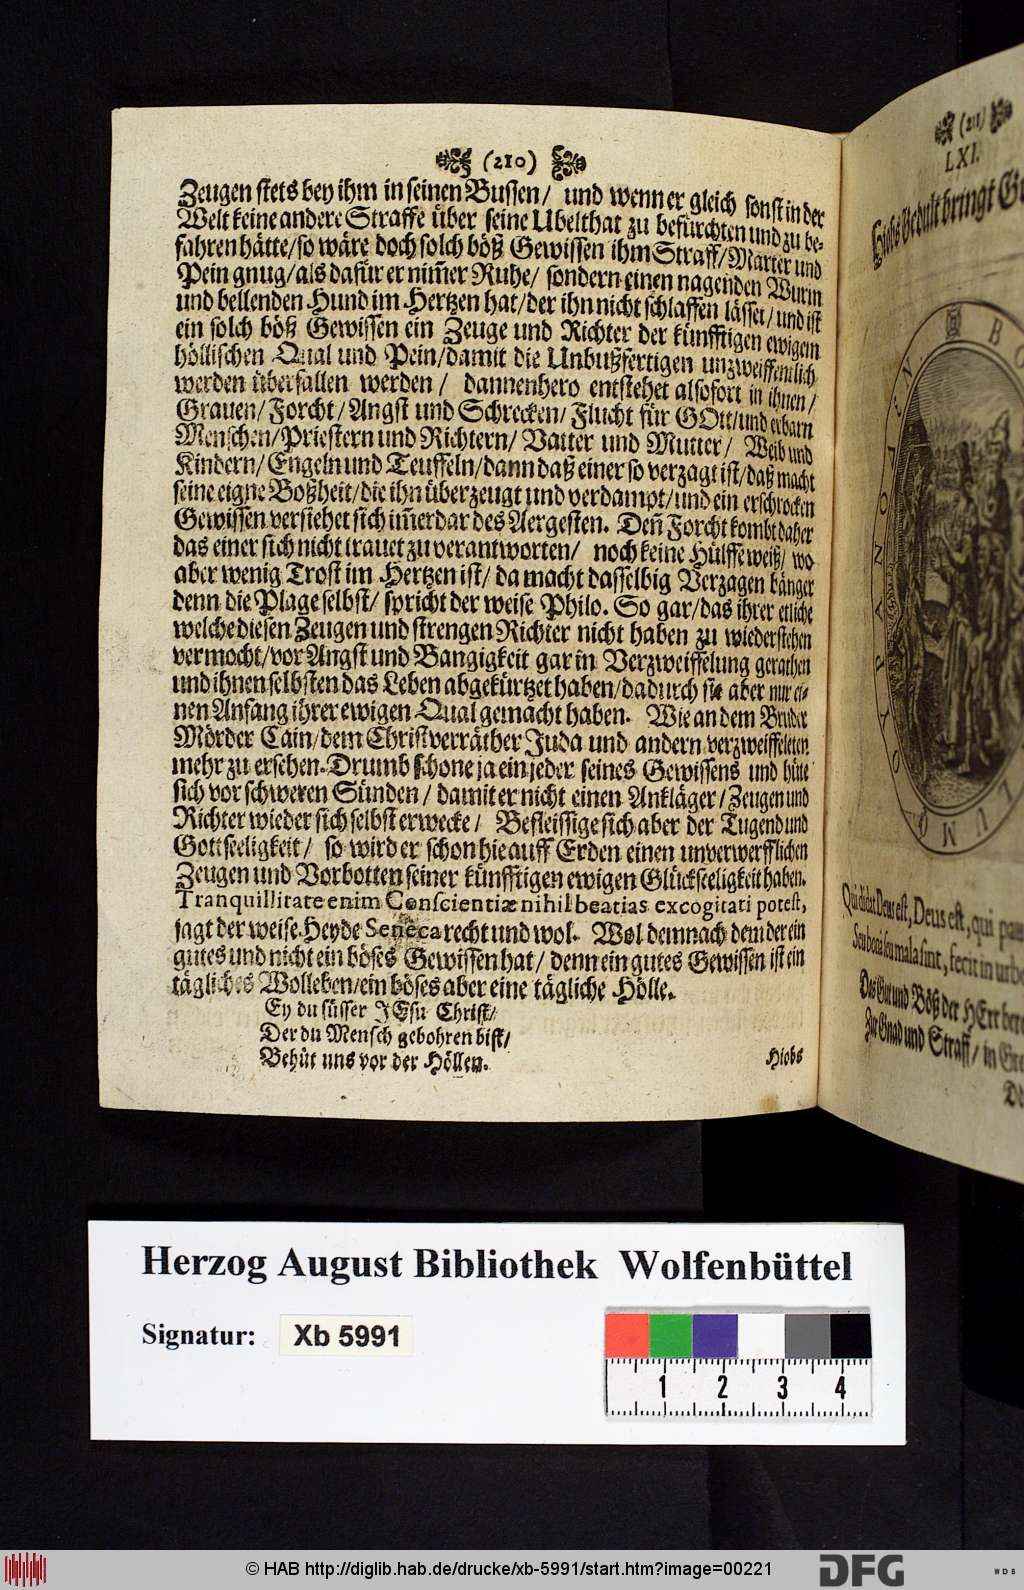 (210)
Zeugen stets bey ihm in seinen Bussen/ und wenn er gleich sonst in der
Welt keine andere Straffe über seine Ubelthat zu befürchten und zu be-
fahren hätte/so wäre doch solch böß Gewissen ihm Straff/Marter und
Pein gnug/als dafür er nim̃er Ruhe/ sondern einen nagenden Wurm
und bellenden Hund im Hertzen hat/der ihn nicht schlaffen lässet/und ist
ein solch böß Gewissen ein Zeuge und Richter der künfftigen ewigem
höllischen Qual und Pein/damit die Unbußfertigen unzweiffentlich
werden überfallen werden/ dannenhero entstehet alsofort in ihnen/
Grauen/Forcht/Angst und Schrecken/Flucht für GOtt/und erbarn
Menschen/Priestern und Richtern/ Vatter und Mutter/ Weib und
Kindern/Engeln und Teuffeln/dann daß einer so verzagt ist/daß macht
seine eigne Boßheit/die ihn überzeugt und verdampt/und ein erschrocken
Gewissen versiehet sich im̃erdar des Aergesten. Deñ Forcht kombt daher
das einer sich nicht trauet zu verantworten/ noch keine Hülffe weiß/ wo
aber wenig Trost im Hertzen ist/ da macht dasselbig Verzagen bänger
denn die Plage selbst/ spricht der weise Philo. So gar/das ihrer etliche
welche diesen Zeugen und strengen Richter nicht haben zu wiederstehen
vermocht/vor Angst und Bangigkeit gar in Verzweiffelung gerathen
und ihnen selbsten das Leben abgekürtzet haben/dadurch sie aber nur ei-
nen Anfang ihrer ewigen Qual gemacht haben. Wie an dem Bruder
Mörder Cain/dem Christverräther Juda und andern verzweiffeleten
mehr zu ersehen. Drumb schone ja ein jeder seines Gewissens und hüte
sich vor schweren Sünden/ damit er nicht einen Ankläger/Zeugen und
Richter wieder sich selbst erwecke/ Befleissige sich aber der Tugend und
Gottseeligkeit/ so wird er schon hie auff Erden einen unverwerfflichen
Zeugen und Vorbotten seiner künfftigen ewigen Glückseeligkeit haben.
Tranquillitate enim Conscientiæ nihil beatias excogitari potest,
sagt der weise Heyde Seneca recht und wol. Wol demnach dem der ein
gutes und nicht ein böses Gewissen hat/ denn ein gutes Gewissen ist ein
tägliches Wolleben/ein böses aber eine tägliche Hölle.
Ey du süsser JEsu Christ/
Der du Mensch gebohren bist/
Behüt uns vor der Höllen.
Hiobs
(211)
LXI.
Hiobs Gedult bringt
Qui didat Deus est, Deus est, qui
Seu bona seu mala sint, fecit in urbe
Das Gut und Böß der HErr
Zur Gnad und Straff/ in
Herzog August Bibliothek Wolfenbüttel
Signatur: Xb 5991
1 2 3 4
© HAB http://diglib.hab.de/drucke/xb-5991/start.htm?image=00221
DFG
WDB